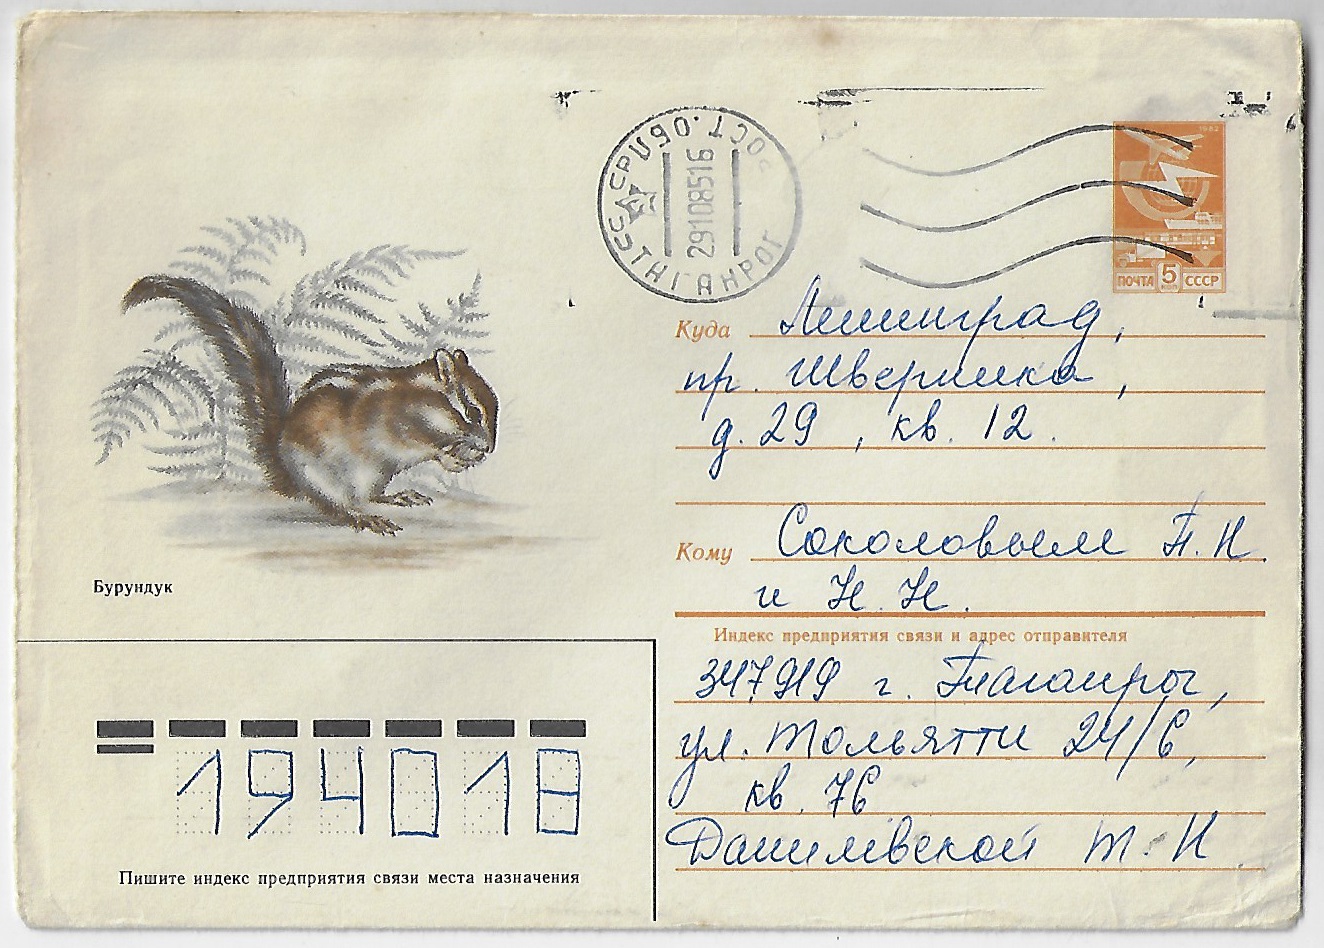 СССР ТАГАНРОГ РОСТ. ОБЛ.
29108516
1982
ПОЧТА 5 КОП СССР
Куда Ленинград,
пр. Шверника,
д. 29, кв. 12.
Кому Соколовым П. И
и Н. Н.
Бурундук
Индекс предприятия связи и адрес отправителя
347919 г. Таганрог,
ул. Тольятти 24/6,
кв. 76
Данилевской Т. И
194018
Пишите индекс предприятия связи места назначения